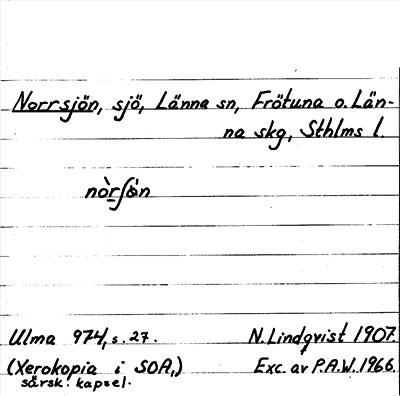 Norrsjön, sjö, Länna sn, Frötuna o. Län-
na skg, Sthlms l.
nòrʃö̀n
Ulma 974, s. 27. N. Lindqvist 1907.
(Xerokopia i SOA,) Exc. av P.A.W. 1966.
särsk. kapsel.